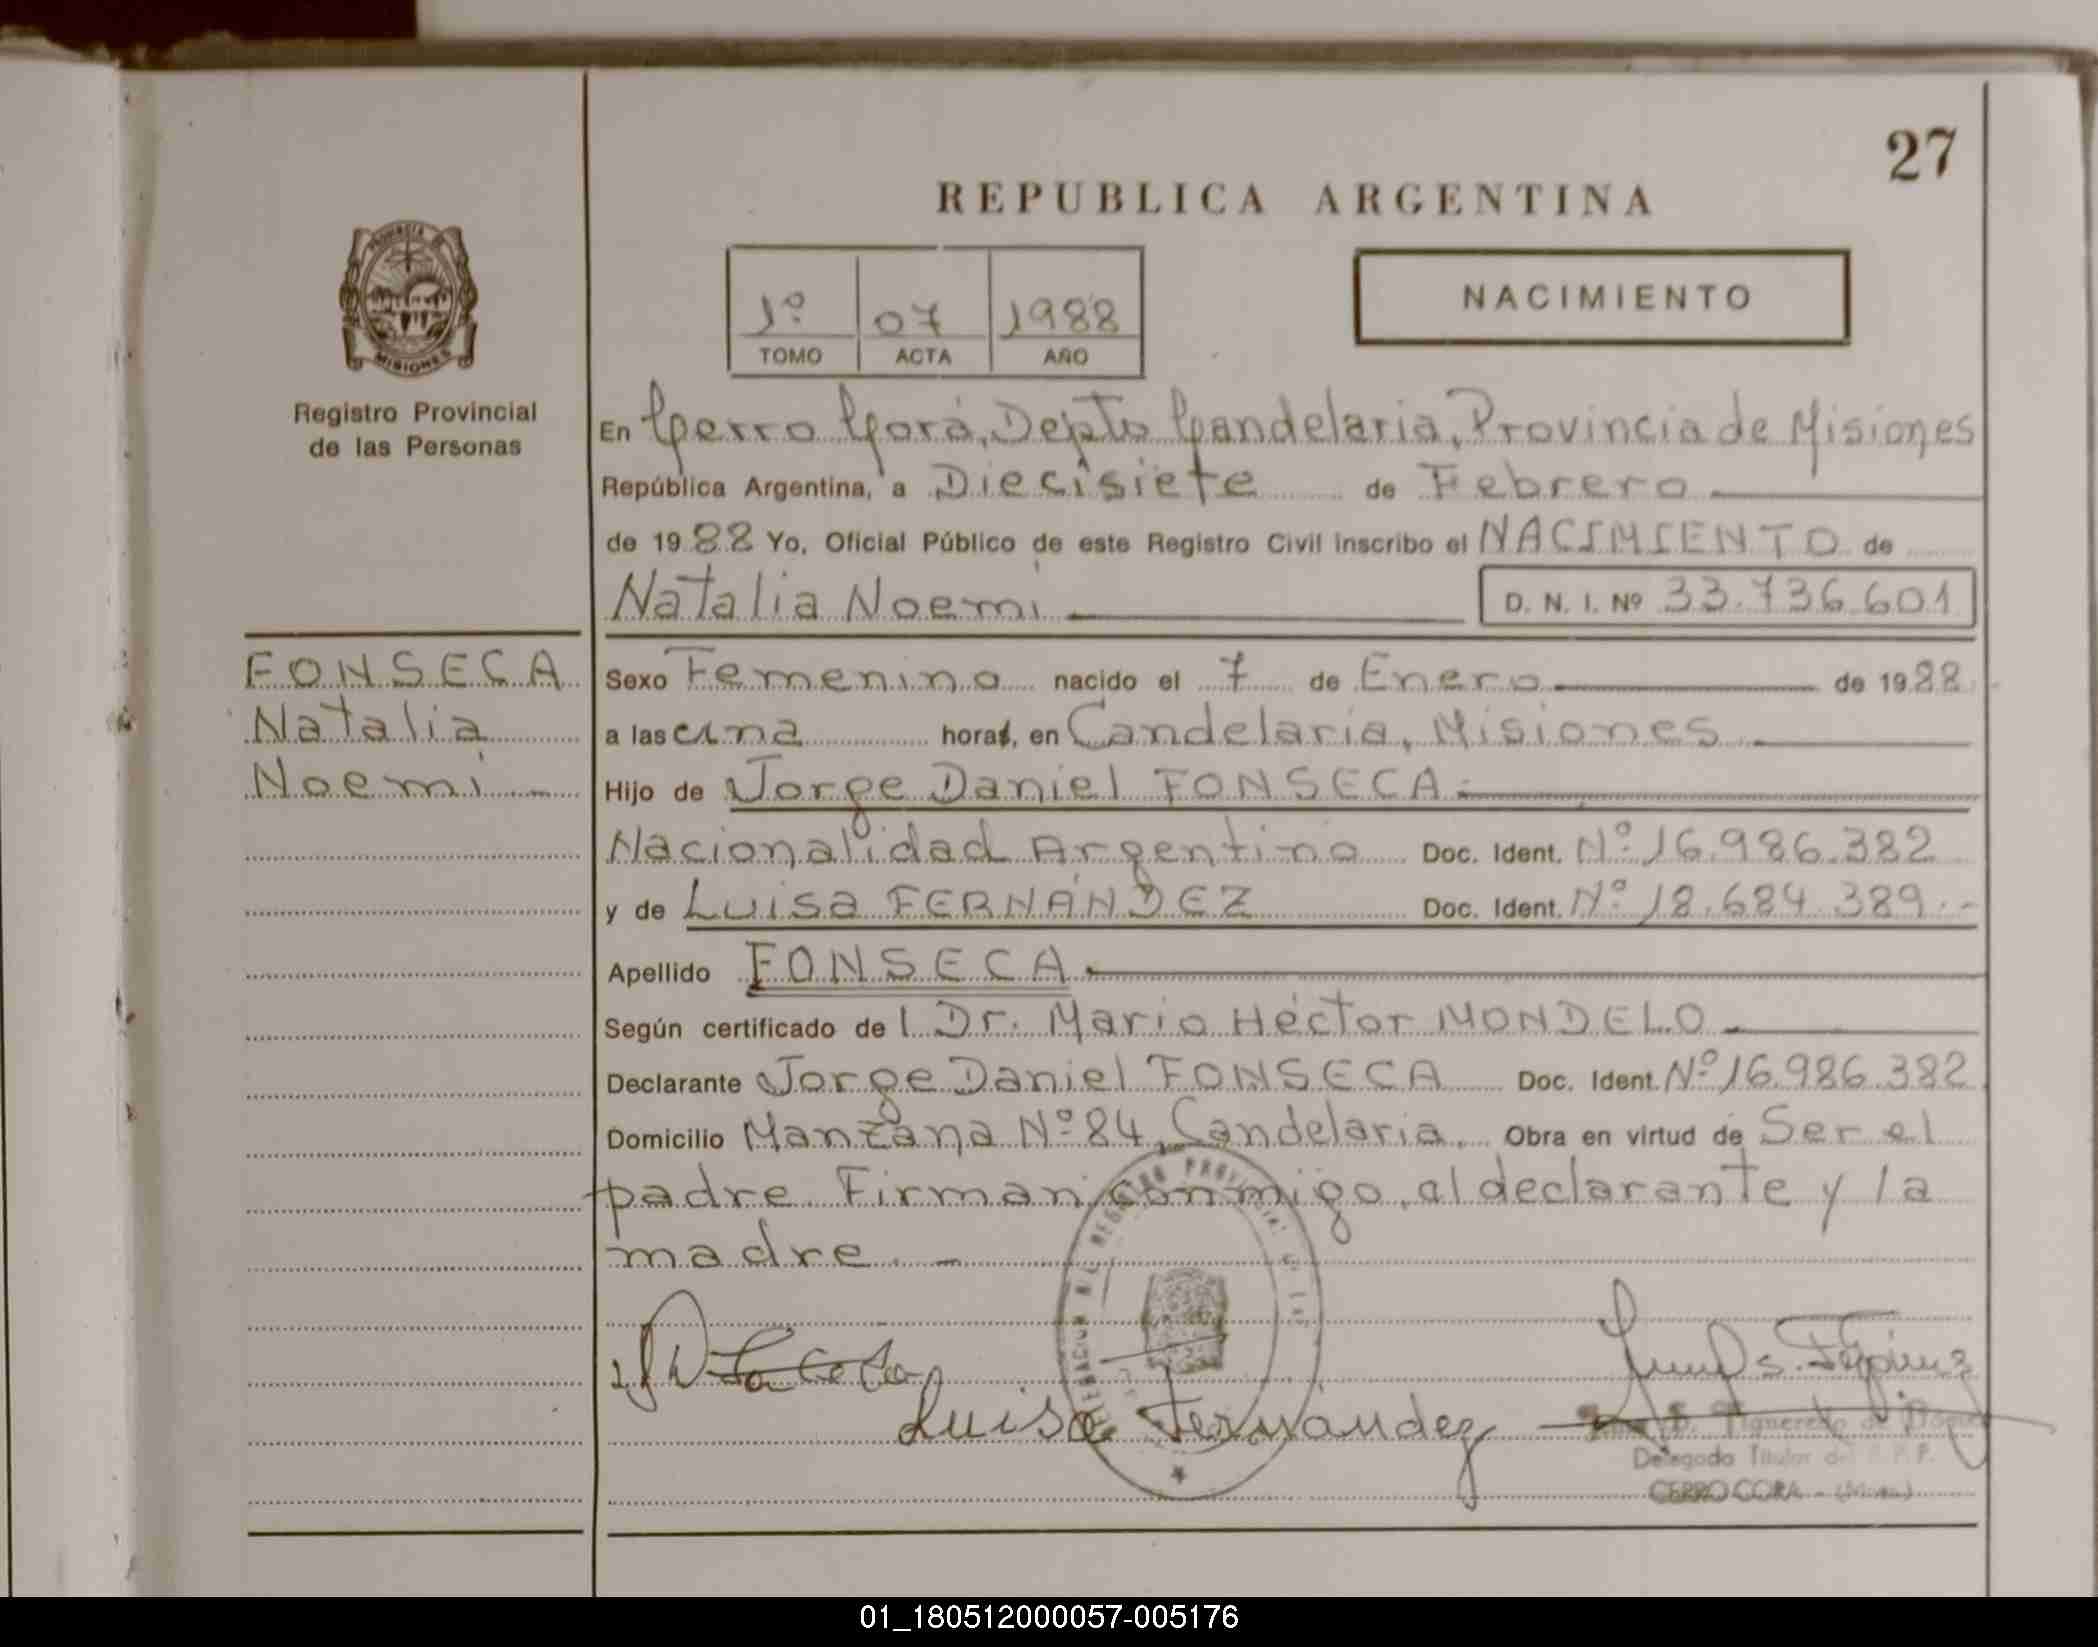 27
REPUBLICA ARGENTINA
PROVINCIA DE
MISIONES
Registro Provincial
de las Personas
1º 07 1988
TOMO ACTA AÑO
NACIMIENTO
En Cerro Corá, Depto Candelaria, Provincia de Misiones
República Argentina, a Diecisiete de Febrero
de 1988 Yo, Oficial Público de este Registro Civil inscribo el NACIMIENTO de
Natalia Noemi D. N. I. Nº 33.736.601
FONSECA
Natalia
Noemi
Sexo Femenino nacido el 7 de Enero de 1988
a las una horas, en Candelaria, Misiones
Hijo de Jorge Daniel FONSECA
Nacionalidad Argentino Doc. Ident. Nº 16.986.382
y de Luisa FERNÁNDEZ Doc. Ident. Nº 18.684.389.-
Apellido FONSECA
Según certificado del Dr. Mario Héctor MONDELO
Declarante Jorge Daniel FONSECA Doc. Ident. Nº 16.986.382
Domicilio Manzana Nº 84, Candelaria. Obra en virtud de Ser el
padre. Firman conmigo, el declarante y la
madre.-
Luisa Fernández
Delegado Titular del
CERRO CORA - (Mnes.)
01_180512000057-005176